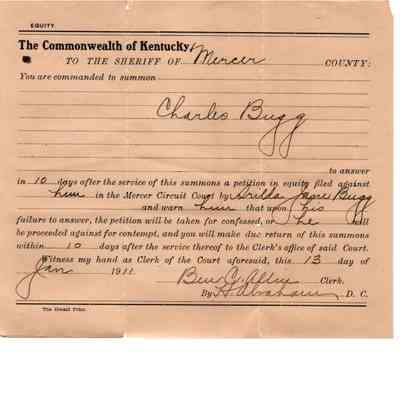 EQUITY
The Commonwealth of Kentucky,
TO THE SHERIFF OF Mercer COUNTY:
You are commanded to summon
Charles Bugg
to answer
in 10 days after the service of this summons a petition in equity filed against
him in the Mercer Circuit Court by Bugg
and warn him that upon his
failure to answer, the petition will be taken for confessed, or he will
be proceeded against for contempt, and you will make due return of this summons
within 10 days after the service thereof to the Clerk's office of said Court.
Witness my hand as Clerk of the Court aforesaid, this 13 day of
Jan 1911. Ben C. Allin Clerk.
By Abraham, D. C.
The Herald Print.